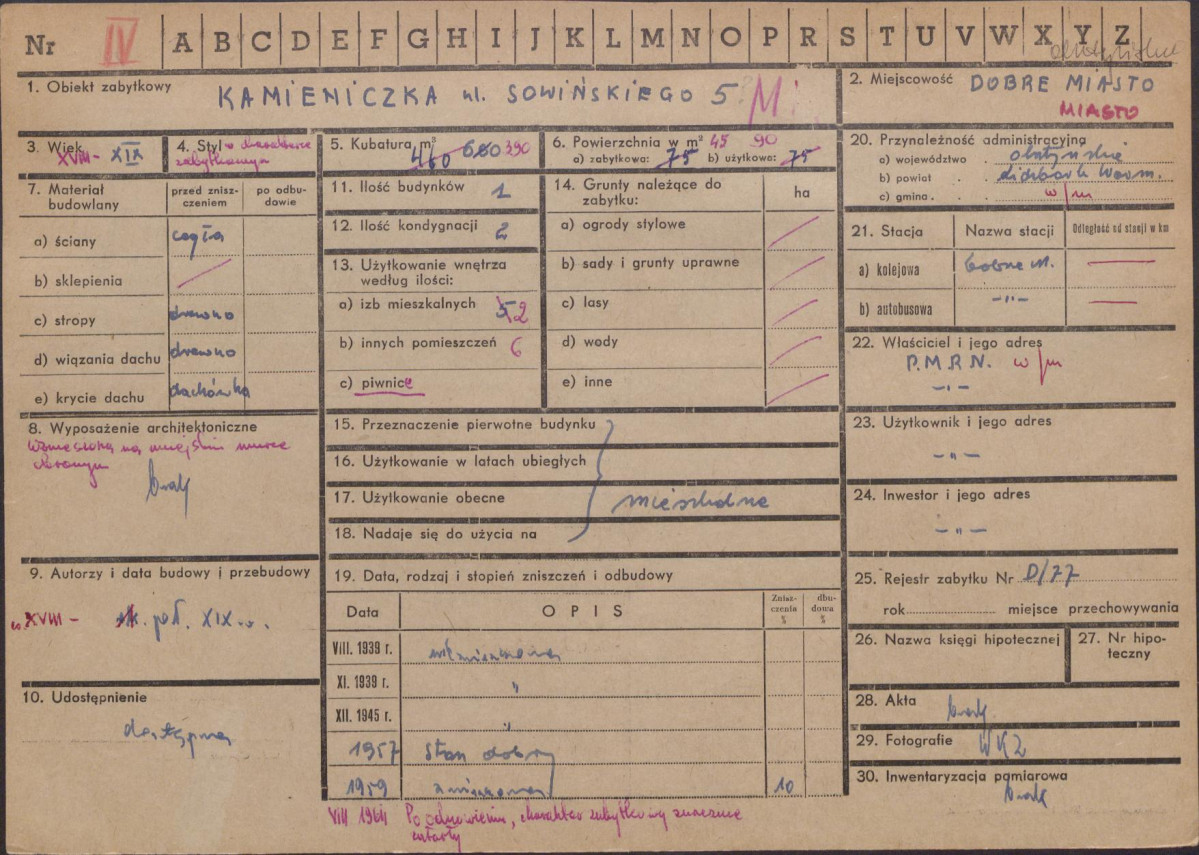 Nr IV A B C D E F G H I J K L M N O P R S T U V W X Y Z
1. Obiekt zabytkowy KAMIENICZKA ul. SOWIŃSKIEGO 5
2. Miejscowość DOBRE MIASTO
MIASTO
3. Wiek XVIII - XIX
4. Styl o charakterze
zabytkowym
5. Kubatura m³ 460 680 390
6. Powierzchnia w m² 45 90
a) zabytkowa: 75 b) użytkowa: 75
7. Materiał budowlany
przed zniszczeniem
po odbudowie
a) ściany cegła
b) sklepienia
c) stropy drewno
d) wiązania dachu drewno
e) krycie dachu dachówka
8. Wyposażenie architektoniczne
wzniesiona na miejskim murze
obronnym
brak
9. Autorzy i data budowy i przebudowy
XVIII - poł. XIX w.
10. Udostępnienie
dostępna
11. Ilość budynków 1
12. Ilość kondygnacji 2
13. Użytkowanie wnętrza
według ilości:
a) izb mieszkalnych 5 2
b) innych pomieszczeń 6
c) piwnice
14. Grunty należące do
zabytku:
ha
a) ogrody stylowe
b) sady i grunty uprawne
c) lasy
d) wody
e) inne
15. Przeznaczenie pierwotne budynku
16. Użytkowanie w latach ubiegłych
17. Użytkowanie obecne
mieszkalne
18. Nadaje się do użycia na
19. Data, rodzaj i stopień zniszczeń i odbudowy
Data OPIS Zniszczenia % dbudowa %
VIII. 1939 r. niezniszczona
XI. 1939 r. "
XII. 1945 r. "
1957 stan dobry
1959 10
VIII 1964 Po odnowieniu, charakter zabytkowy znacznie
zatarty
20. Przynależność administracyjna
a) województwo olsztyńskie
b) powiat Lidzbark Warm.
c) gmina w/m
21. Stacja Nazwa stacji Odległość od stacji w km
a) kolejowa Dobre M.
b) autobusowa -"-
22. Właściciel i jego adres
P.M.R.N. w/m
-"-
23. Użytkownik i jego adres
-"-
24. Inwestor i jego adres
-"-
25. Rejestr zabytku Nr D/77
rok miejsce przechowywania
26. Nazwa księgi hipotecznej
27. Nr hipoteczny
28. Akta brak
29. Fotografie WKZ
30. Inwentaryzacja pomiarowa
brak